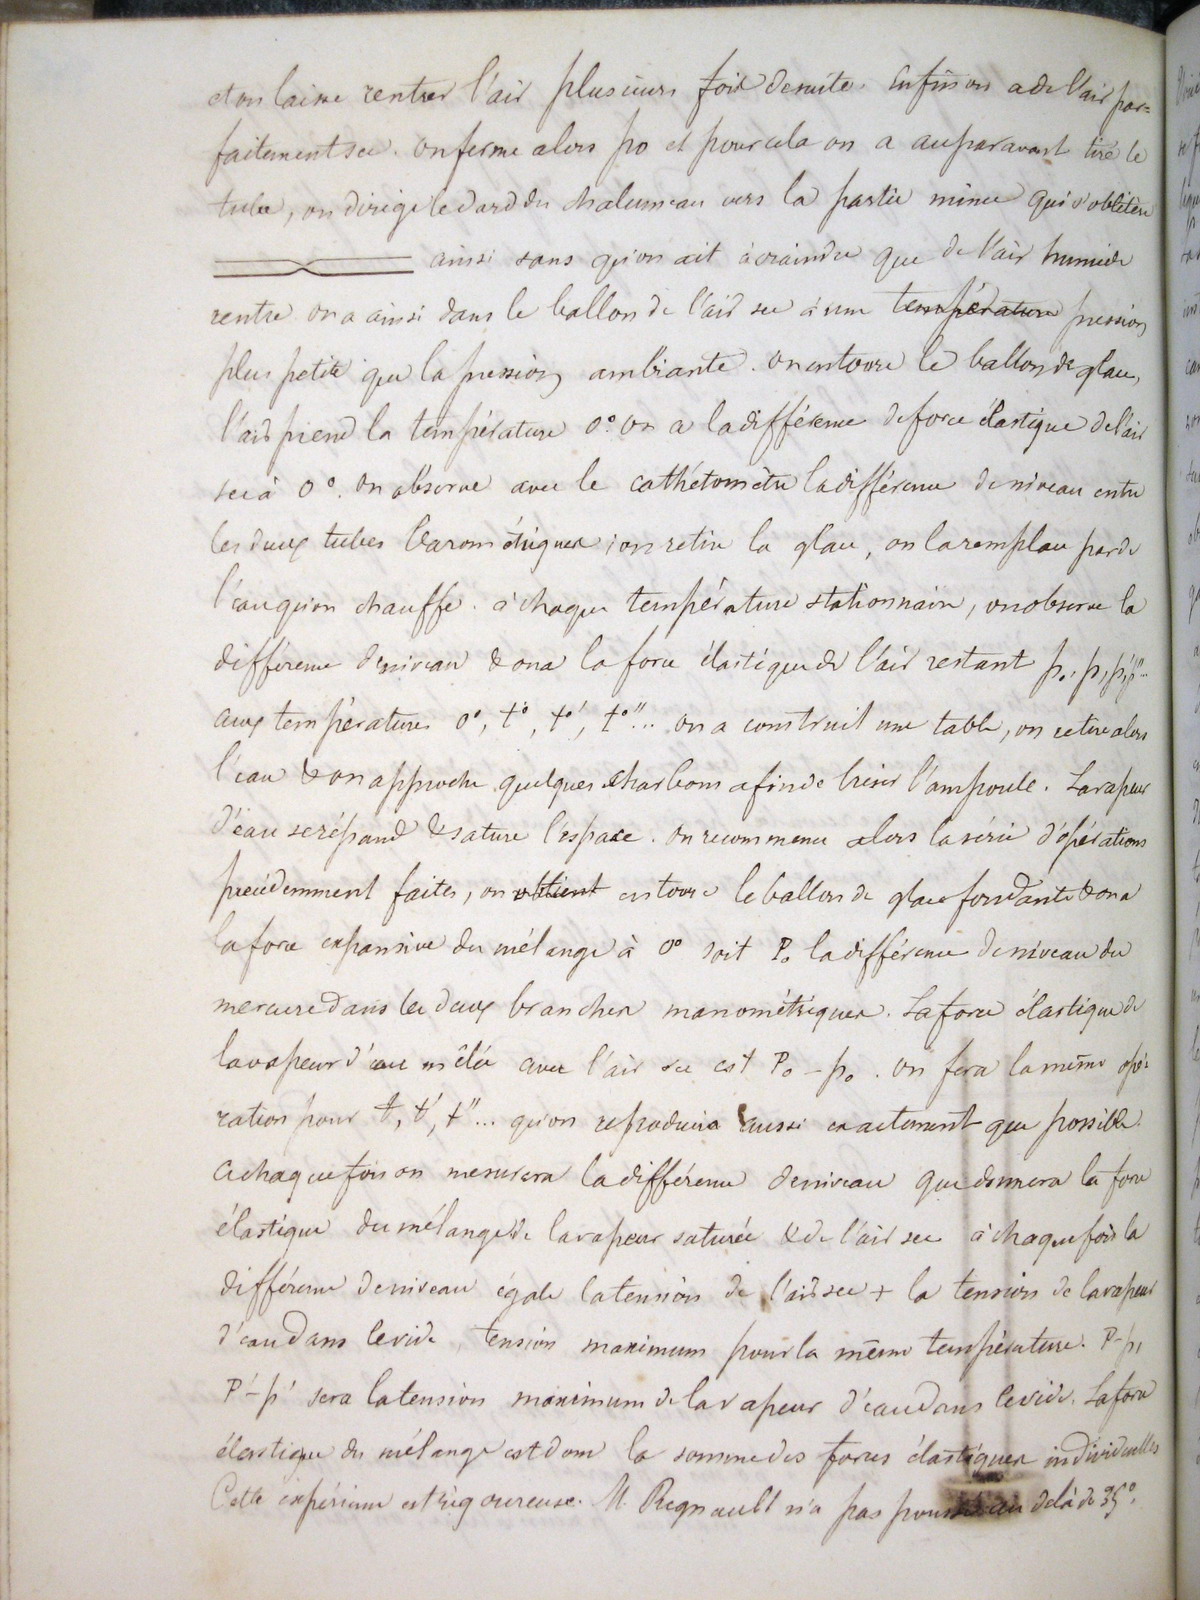 et on laisse rentrer l'air plusieurs fois de suite. Enfin on a de l'air par=
faitement sec. on ferme alors po et pour cela on a auparavant tiré le
tube, on dirige le dard du chalumeau vers la partie mince qui s'oblitère
ainsi sans qu'on ait à craindre que de l'air humide
rentre on a ainsi dans le ballon de l'air sec à une température pression
plus petite que la pression ambiante. on entoure le ballon de glace,
l'air prend la température 0°. on a la différence de force élastique de l'air
sec à 0°. on observe avec le cathétomètre la différence de niveau entre
les deux tubes barométriques ; on retire la glace, on la remplace par de
l'eau qu'on chauffe. à chaque température stationnaire, on observe la
différence de niveau & on a la force élastique de l'air restant p₀, p, p', p''...
aux températures 0°, t°, t°', t°''... on a construit une table, on retire alors
l'eau & on approche quelques charbons afin de briser l'ampoule. La vapeur
d'eau se répand & sature l'espace. on recommence alors la série d'opérations
précédemment faites, on obtient entoure le ballon de glace fondante & on a
la force expansive du mélange à 0° soit P₀ la différence de niveau du
mercure dans les deux branches manométriques. La force élastique de
la vapeur d'eau mêlée avec l'air sec est P₀ - p₀. on fera la même opé-
ration pour t, t', t''... qu'on reproduira aussi exactement que possible.
A chaque fois on mesurera la différence de niveau que donnera la force
élastique du mélange de la vapeur saturée & de l'air sec à chaque fois la
différence de niveau égale la tension de l'air sec + la tension de la vapeur
d'eau dans le vide, tension maximum pour la même température. P-p,
P'-p' sera la tension maximum de la vapeur d'eau dans le vide. La force
élastique du mélange est donc la somme des forces élastiques individuelles
Cette expérience est rigoureuse. M. Regnault n'a pas poussé au delà de 35°.